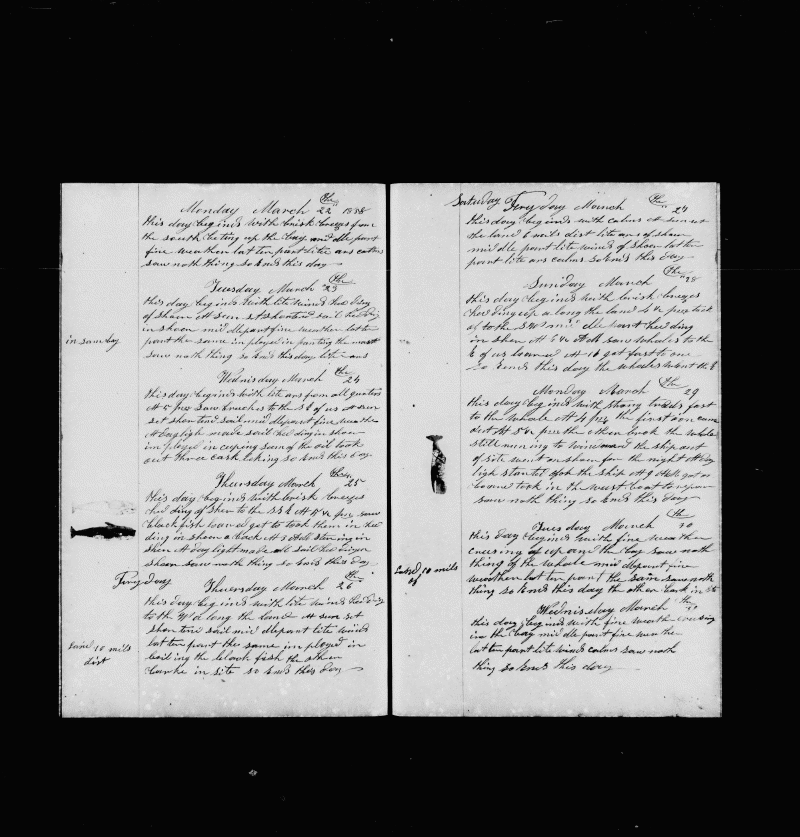 Monday March 22th 1858
this day begins with brisk breezes from
the south beting up the bay middle part
fine weather latten part lite ars calms
saw noth thing so Ends this day
Tuesday March 23th
this day begins with lite winds
of shoen At sen set shortend sail
in shoen mid dlepart fine weather latten
in sam bay
part the same im ployed in panting the mast
saw noth thing so Ends this day lite ars
Wednisday March 24th
this day begins with lite ars from all quaters
At 5 pm saw breaches to the SE of us At sen
set shortend sail mid dlepart fine weather
At day ligh made sail hed ding in shoen
im ployed in coping sum of the oil took
out three cask leking so Ends this day
Thursday March 25th
this day begins with brisk breezes
hed ding of shoen to the SSE At 5 pm saw
blackfish loard got to took them in hed
ding in shoen a back At 3 AM stering in
shoen At day light made all sail
shoen saw noth thing so Ends this day
Fryday
Thuersday March 26th
this day begins with lite winds
to the Wd long the land At sun set
shortend sail mid dlepart lite winds
Land 10 mils
Dist
latten part the same im ployed in
boiling the black fish the other
barke in site so Ends this day
Saturday
Fryday March 27
this day begins with calms At sun set
the land 6 mils dist lite ars of shoen
mid dle part lite winds of shoen latten
part lite ars calms so Ends this day
Sunday March 28th
this day begins with brisk breezes
hed ding up a long the land
of to the SW mid dle part hed ding
in shoen At AM saw whales to the
E of us loward At 10 got fast to one
so Ends this day the whales went
Monday March 29th
this day begins with strong trades fast
to the whale At 4 pm the first iron came
out At 5 pm the other took the whale
still runing to windward the ship out
of site went on shoen for the night At day
ligh started for the ship At 9 AM got on
board took in the boat to repair
saw noth thing so Ends this day
Tues day March 30th
this day begins with fine weather
cruising of up and the bay saw noth
thing of the whale mid dlepart fine
Land 10 mils
of
weather latten part the same saw noth
thing so Ends this day the other bark in site
Wednisday March 31th
this day begins with fine weather crusing
in the bay mid dle part fine weather
latten part lite winds calms saw noth
thing so Ends this day